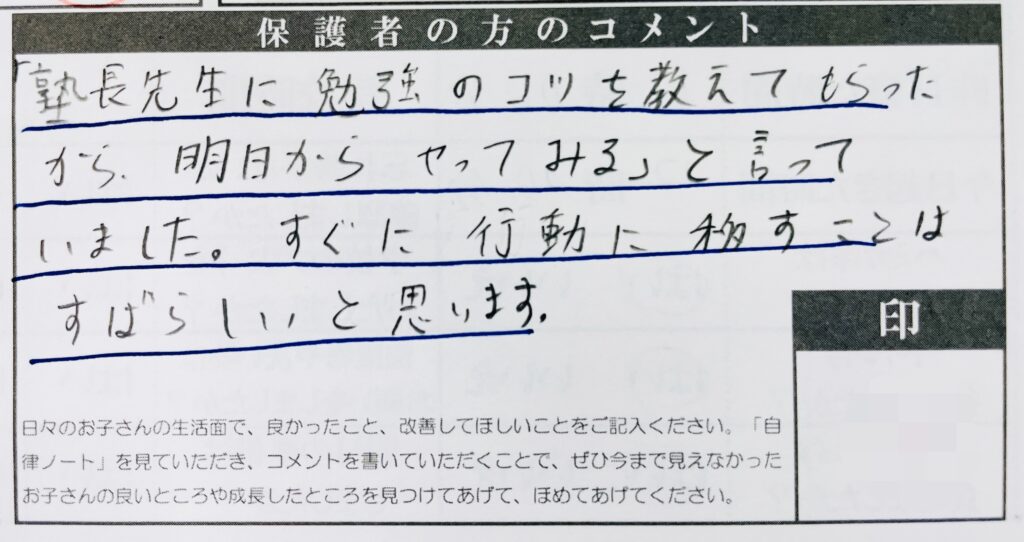 保護者の方のコメント
「塾長先生に勉強のコツを教えてもらった
から、明日からやってみる」と言って
いました。すぐに行動に移すことは
すばらしいと思います。
印
日々のお子さんの生活面で、良かったこと、改善してほしいことをご記入ください。「自
律ノート」を見ていただき、コメントを書いていただくことで、ぜひ今まで見えなかった
お子さんの良いところや成長したところを見つけてあげて、ほめてあげてください。